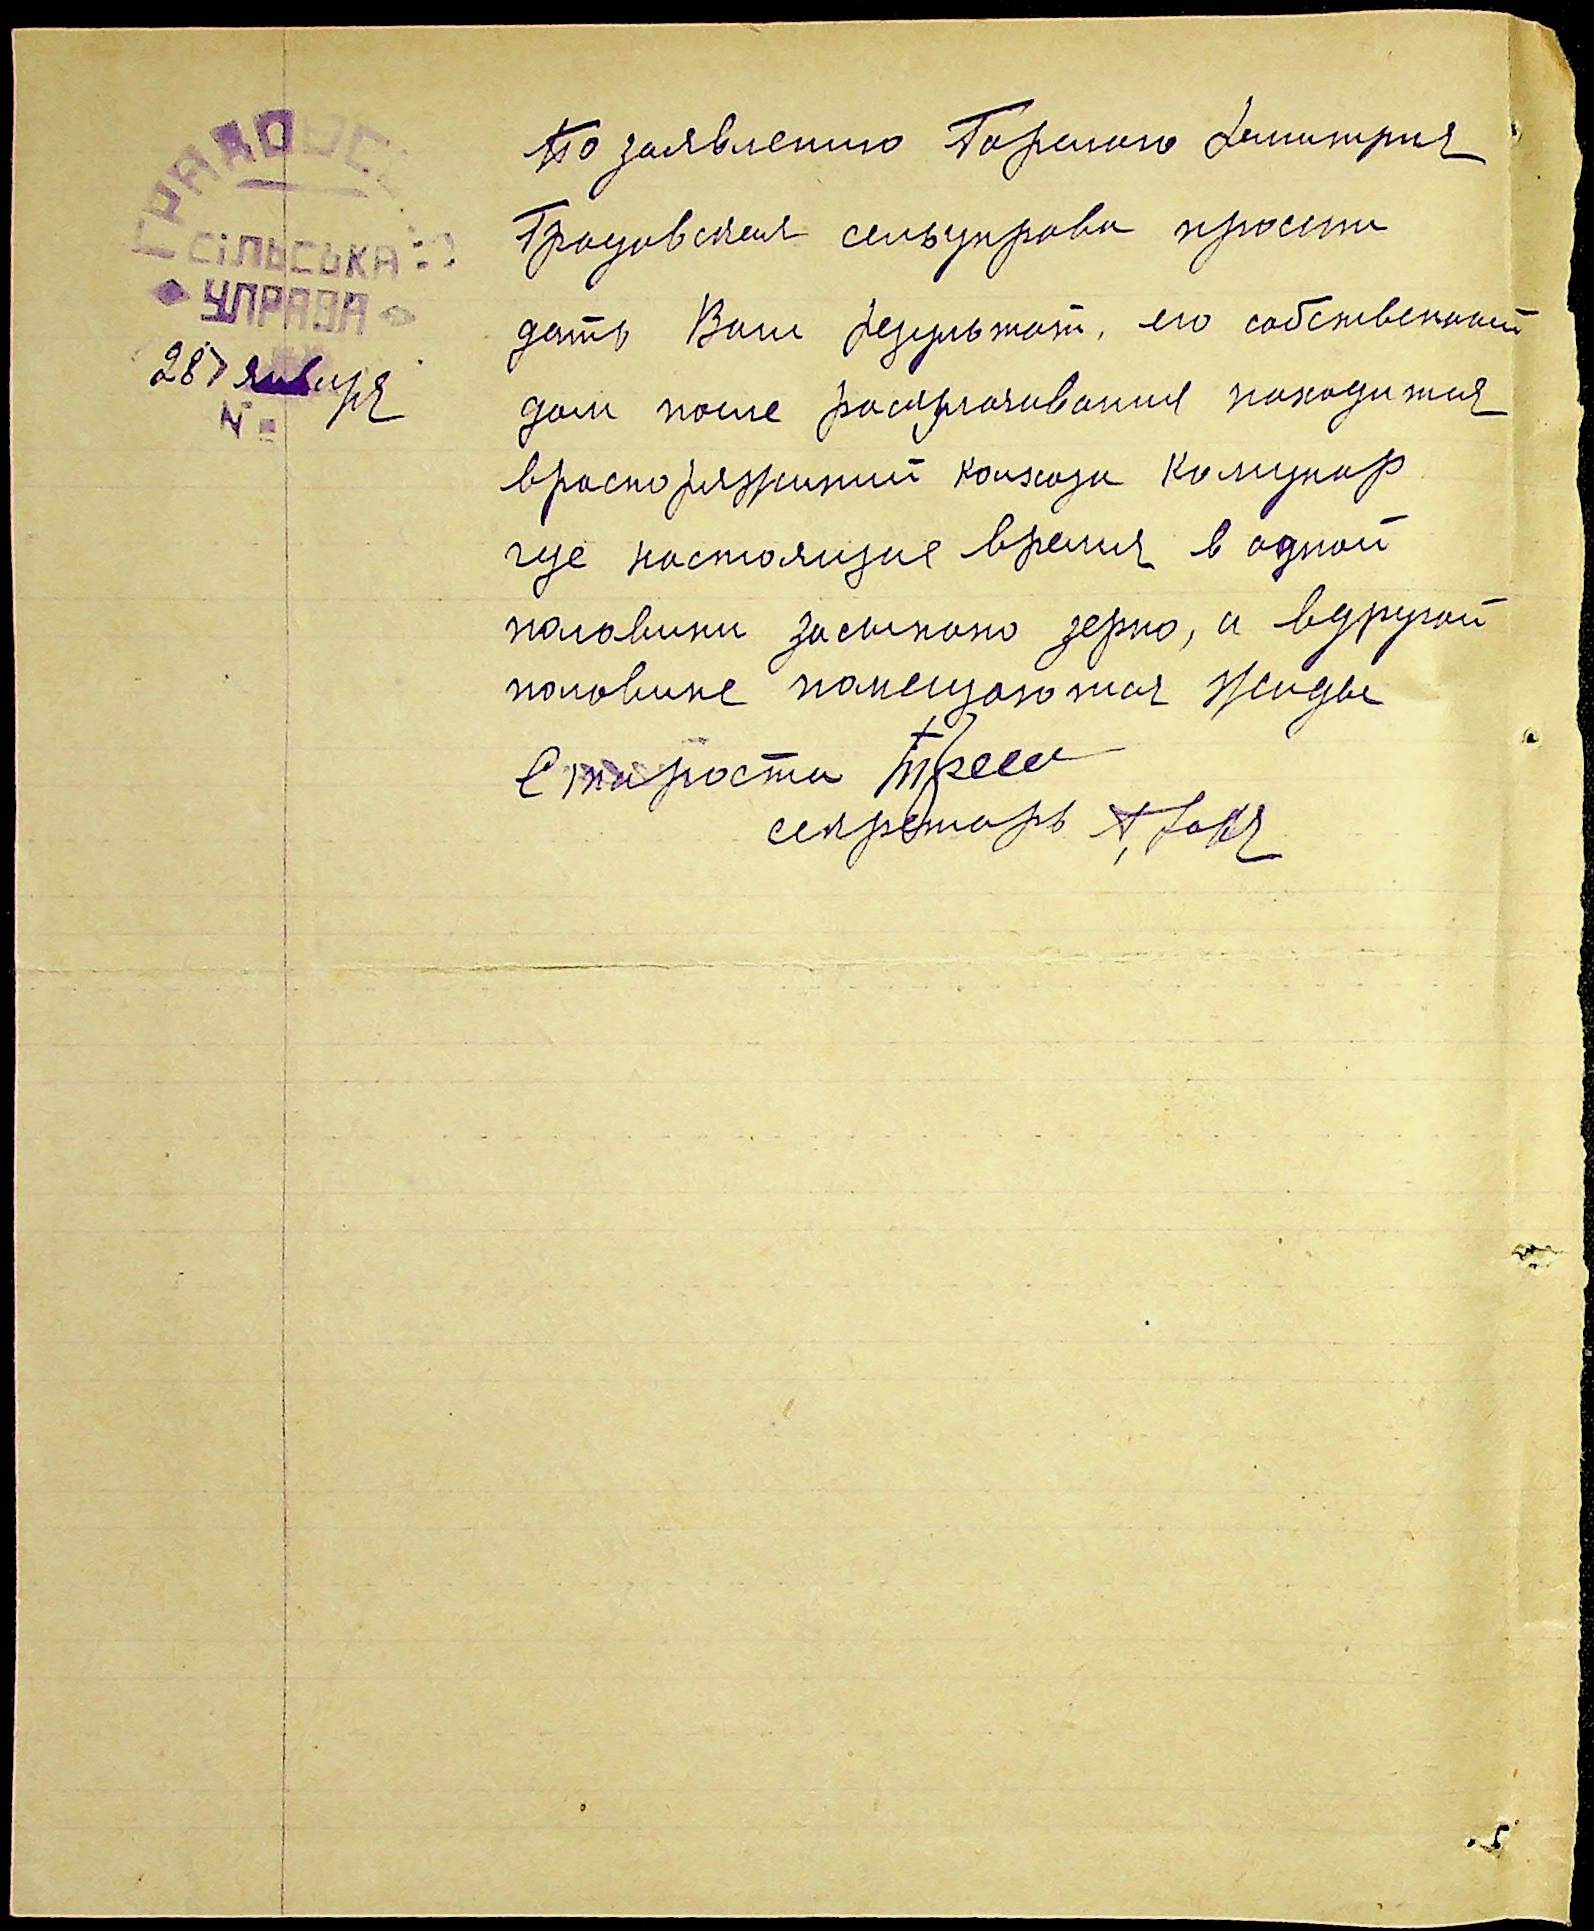 ГРАДОВС
СІЛЬСЬКА
УПРАВА
28 января
№
По заявлению Горелого Дмитрия
Градовская сельуправа просит
дать Вам результат, его собственный
дом после раскулачивания находится
враспоряжений колхоза Комунар
где настоящие время в одной
половини засыпано зерно, а вдругой
половине помещаются жиды
Староста
секретарь